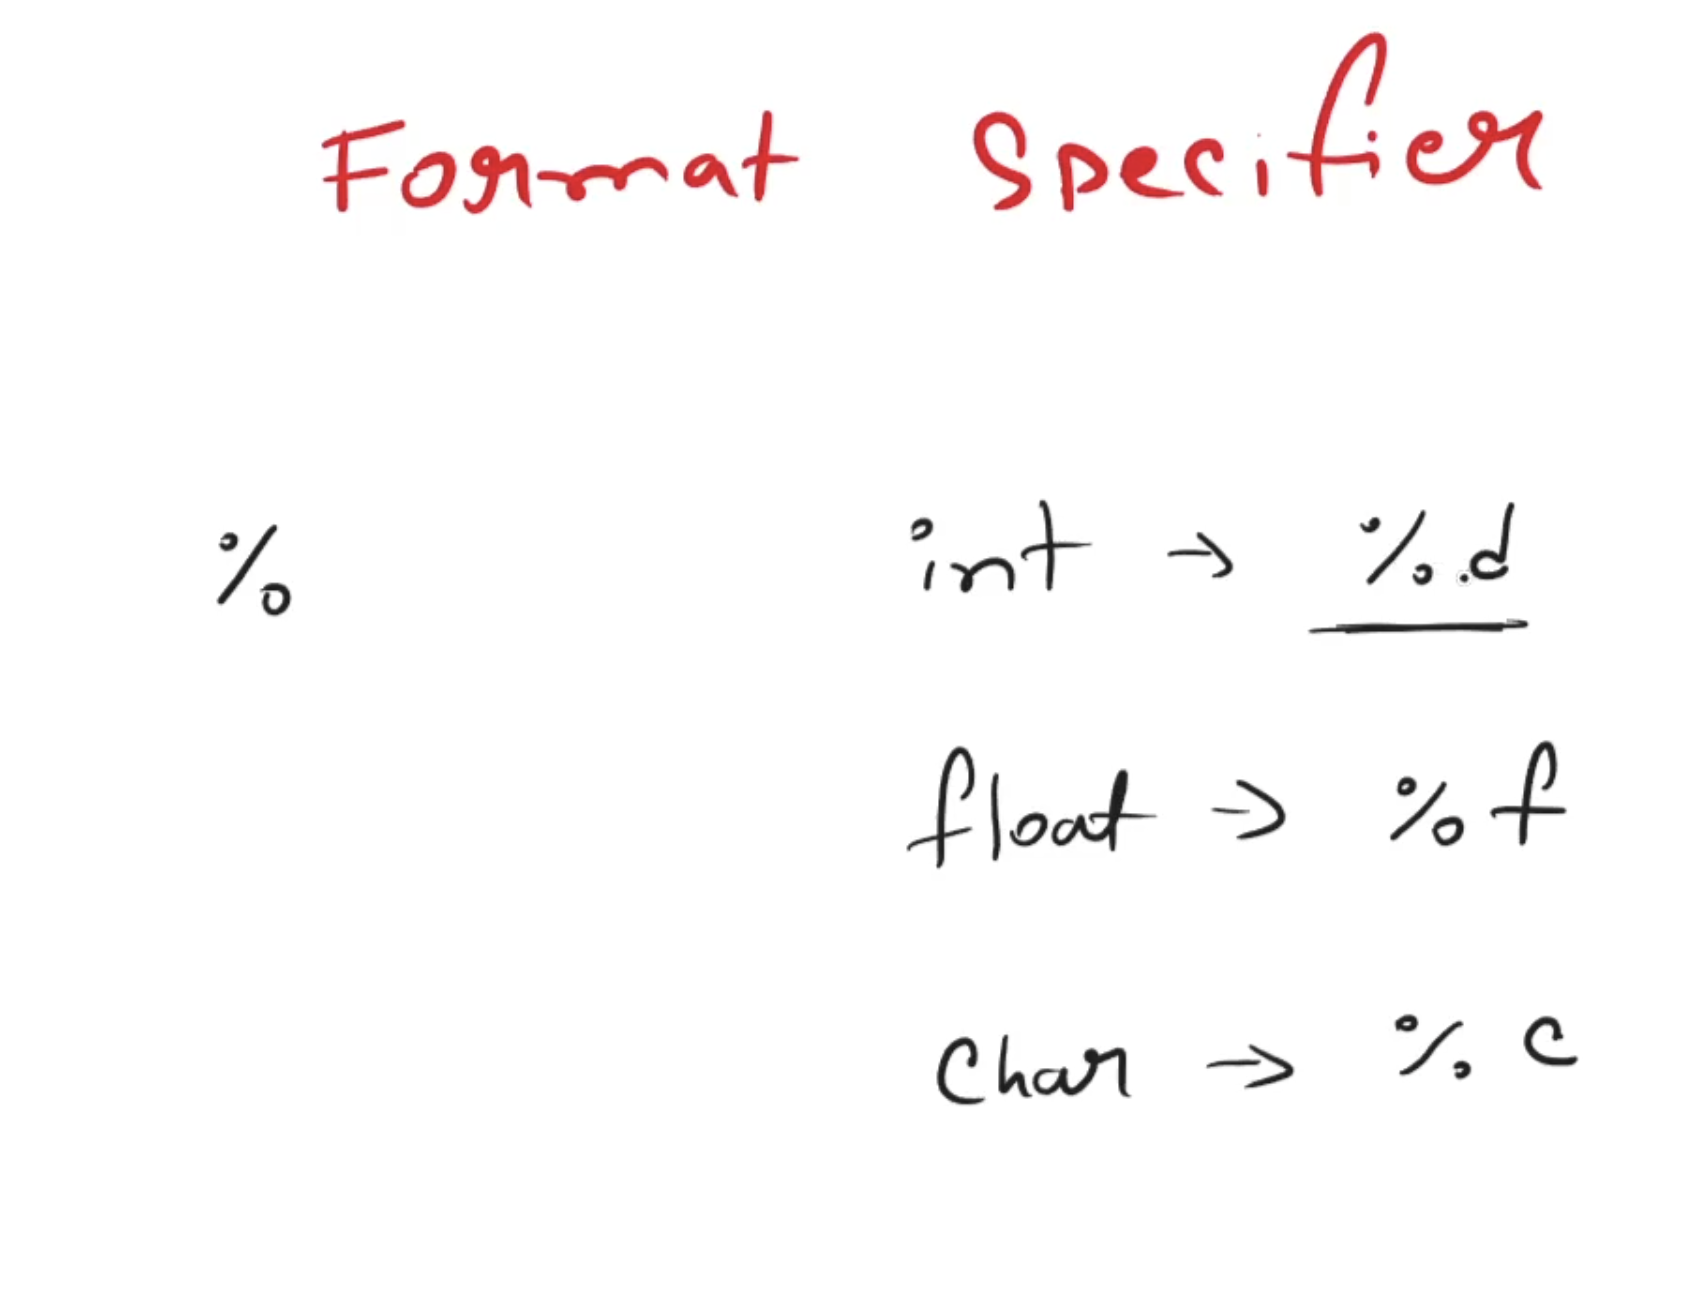 Format Specifier
% int → %d
float → %f
Char → %c